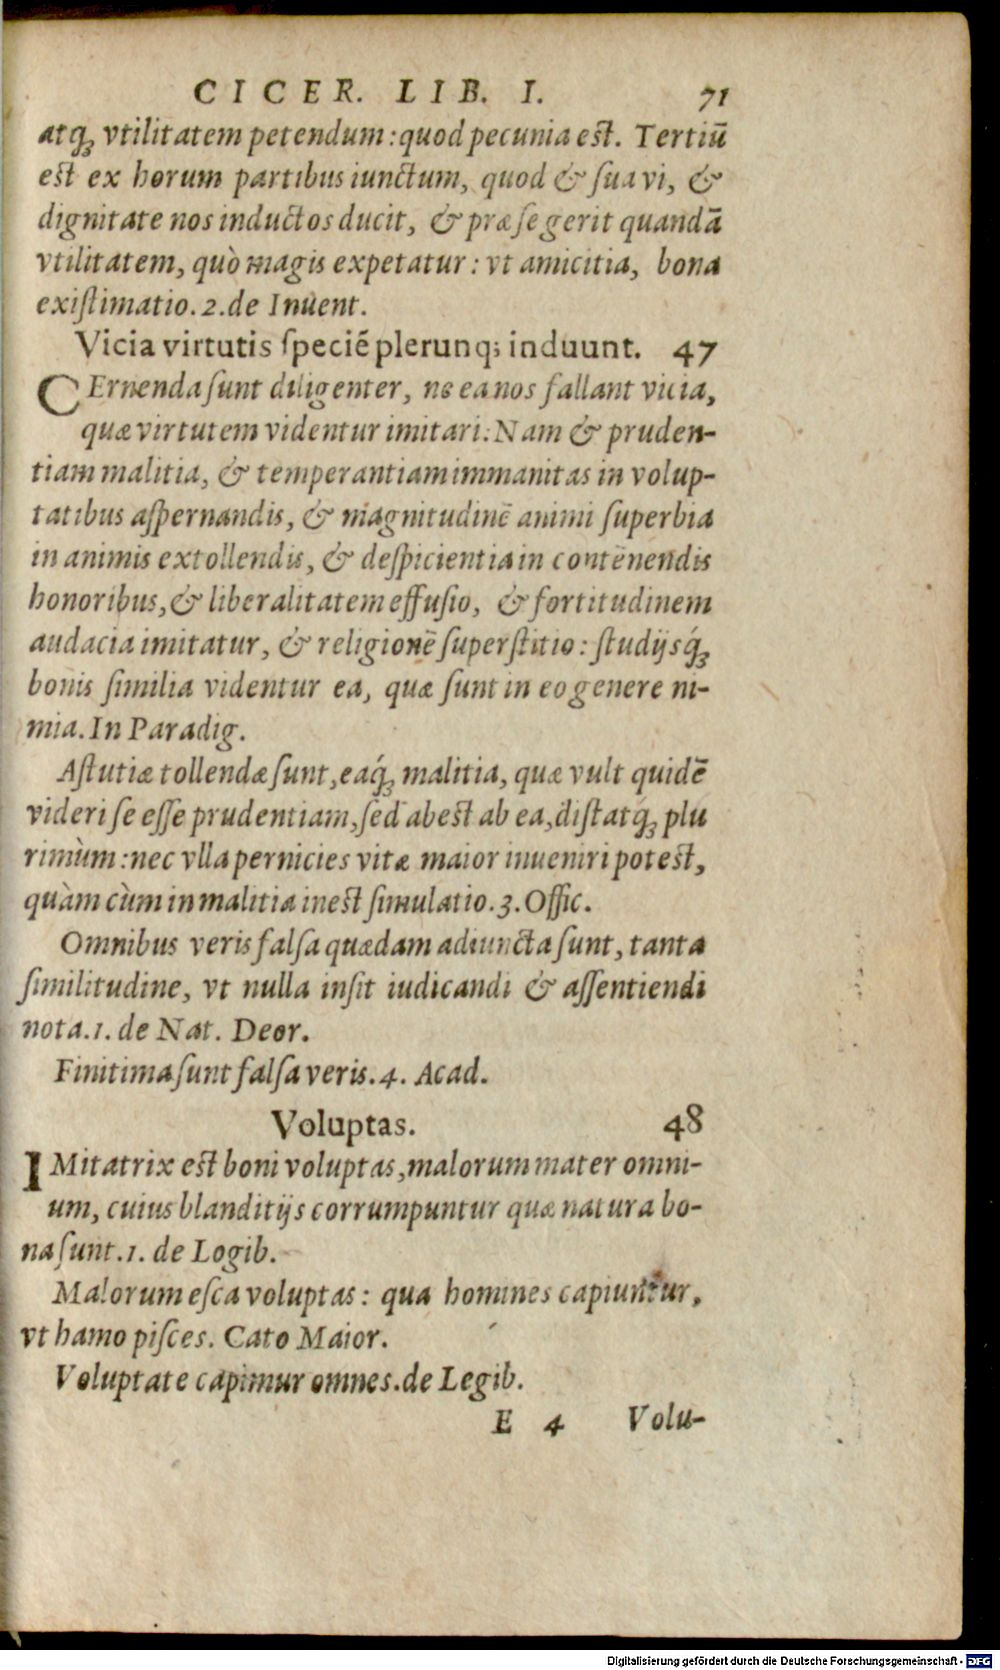 CICER. LIB. I. 71
atq́ꝫ vtilitatem petendum: quod pecunia est. Tertiū
est ex horum partibus iunctum, quod & ſuavi, &
dignitate nos inductos ducit, & præ ſe gerit quandā
vtilitatem, quò magis expetatur: vt amicitia, bona
exiſtimatio. 2. de Inuent.
Vicia virtutis ſpeciē plerunq; induunt. 47
CErnenda ſunt diligenter, ne ea nos fallant vicia,
quæ virtutem videntur imitari: Nam & pruden-
tiam malitia, & temperantiam immanitas in volup-
tatibus aſpernandis, & magnitudinē animi ſuperbia
in animis extollendis, & deſpicientia in contēnendis
honoribus, & liberalitatem effuſio, & fortitudinem
audacia imitatur, & religionē ſuperſtitio: ſtudijsq́ꝫ
bonis ſimilia videntur ea, quæ ſunt in eo genere ni-
mia. In Paradig.
Aſtutiæ tollendæ ſunt, eaq́ꝫ malitia, quæ vult quidē
videri ſe eſſe prudentiam, ſed abest ab ea, diſtatq́ꝫ plu
rimùm: nec vlla pernicies vitæ maior inueniri potest,
quàm cùm in malitia inest ſimulatio. 3. Offic.
Omnibus veris falſa quædam adiuncta ſunt, tanta
ſimilitudine, vt nulla inſit iudicandi & aſſentiendi
nota. 1. de Nat. Deor.
Finitima ſunt falſa veris. 4. Acad.
Voluptas. 48
IMitatrix est boni voluptas, malorum mater omni-
um, cuius blanditijs corrumpuntur quæ natura bo-
na ſunt. 1. de Logib.
Malorum eſca voluptas: qua homines capiuntur,
vt hamo piſces. Cato Maior.
Voluptate capimur omnes. de Legib.
E 4 Volu-
Digitalisierung gefördert durch die Deutsche Forschungsgemeinschaft - DFG